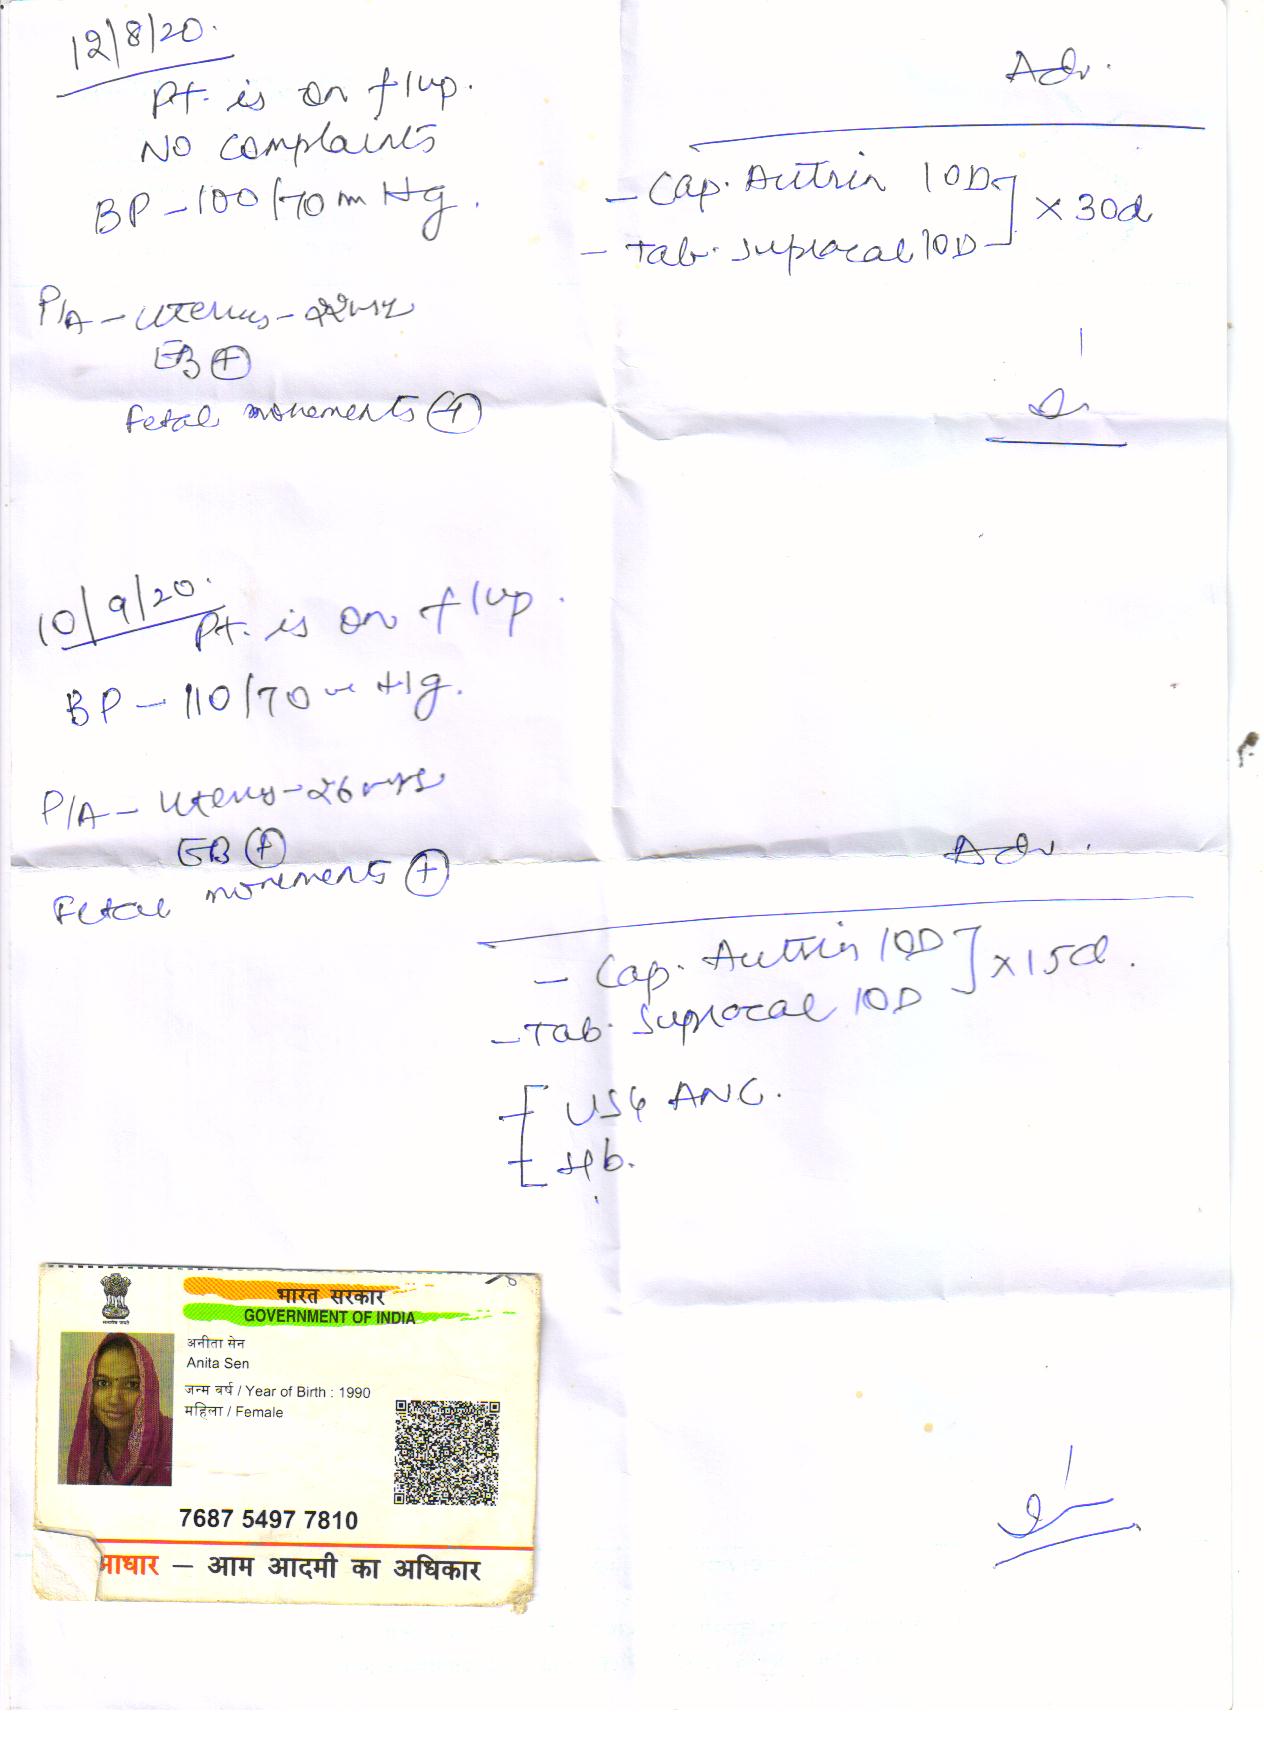 12/8/20.
Pt. is on f/up.
NO complaints
BP - 100/70 m Hg.
P/A - Uterus - 22
EB +
Fetal movements +
Adv.
- Cap. Autrin 1 OD
- Tab. Suprocal 1 OD
x 30d
10/9/20.
Pt. is on f/up.
BP - 110/70 Hg.
P/A - Uterus - 26
EB +
Fetal movements +
Adv.
- Cap. Autrin 1 OD
- Tab. Suprocal 1 OD
x 15d.
USG ANC.
Hb.
भारत सरकार
GOVERNMENT OF INDIA
अनीता सेन
Anita Sen
जन्म वर्ष / Year of Birth : 1990
महिला / Female
7687 5497 7810
आधार – आम आदमी का अधिकार